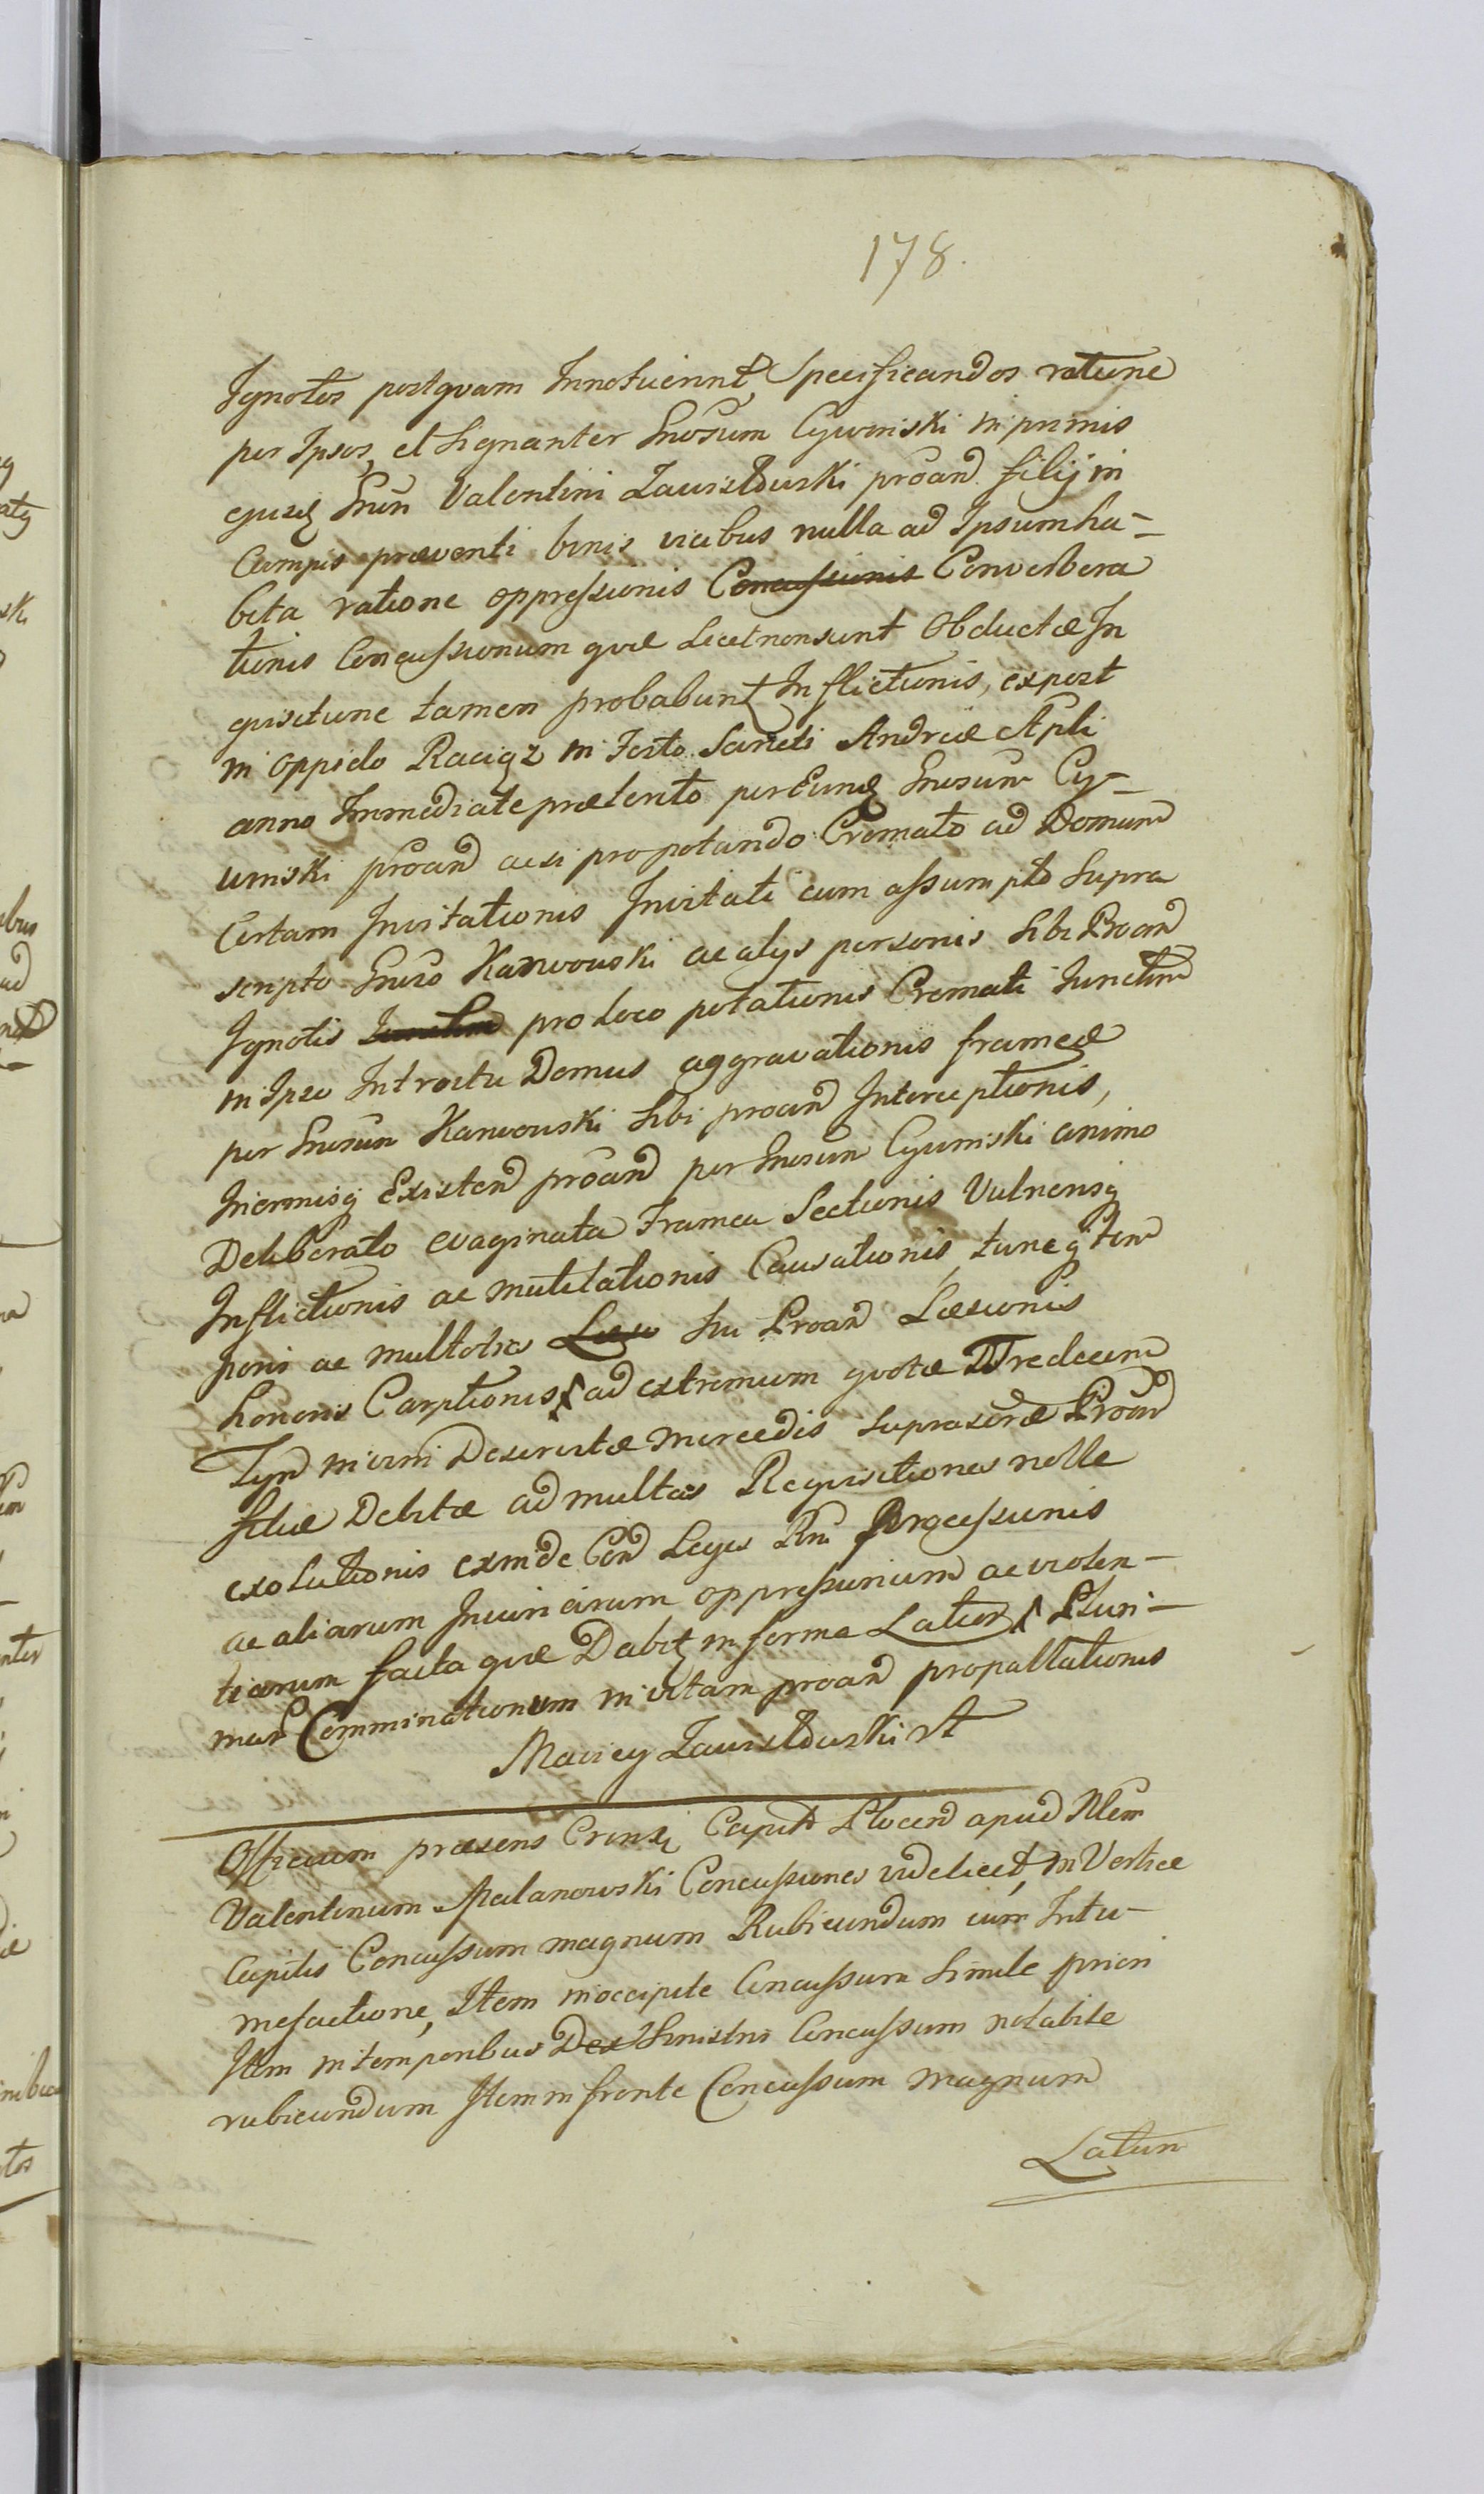 178.
Ignotos postquam Innotuerint Specificandos ratione
per Ipsos et Signanter Gnosum Cywinski in primis
ejusq Gnū Valentini Zawistowski proand filij in
Campis praeventi binis vicibus nulla ad Ipsum ha-
bita ratione oppressionis Concussionis Converbera
tionis Concussionum quae Licet non sunt Obductae In
quisitione tamen probabunt Inflictionis, expost
in oppido Raciąz in Festo Sancti Andreae Apli
anno Immediate praeterito per Eunq Gnosum Cy-
winski proand acsi pro potando Cremato ad Domum
Certam Invitationis Invitati cum assumpto Supra
scripto Gnoso Karwowski ac alys personis Sibi Proand
Ignotis pro Loco potationis Cremati Junctim
in Ipso Introitu Domus aggravationis frameae
per Gnosum Karwowski Sibi proand Interceptionis,
Inermisq Existend proand per Gnosum Cywinski animo
Deliberato evaginata Framea Sectionis Vulnerisq
Inflictionis ac mutilationis Causationis, tuncq tem
poris ac multoties Laesi Sui Proand Laesionis
honoris Carptionis ad extremum quotae Tredecim
Tyn in vim Deservitae mercedis suprascrae Proand
filiae Debitae ad multas Requisitiones nolle
exolutionis exinde Con Leges Rni processionis
ac aliarum Injuriarum oppressionum ac violen-
tiarum facta quae Dabitz in forma Latiori Pluri-
mar Comminationum in vitam proand propallationis
Maciey Zawistowski st
Officium praesens Crense Capit Plocen apud Nlem
Valentinum Malanowski Concussiones videlicet, in Vertice
Capitis Concussum magnum Rubicundum cum Intu-
mefactione, Item in occipite Concussum Simile priori
Item in temporibus Dex Sinistris Concussum notabile
rubicundum Item in fronte Concussum magnum
Latum